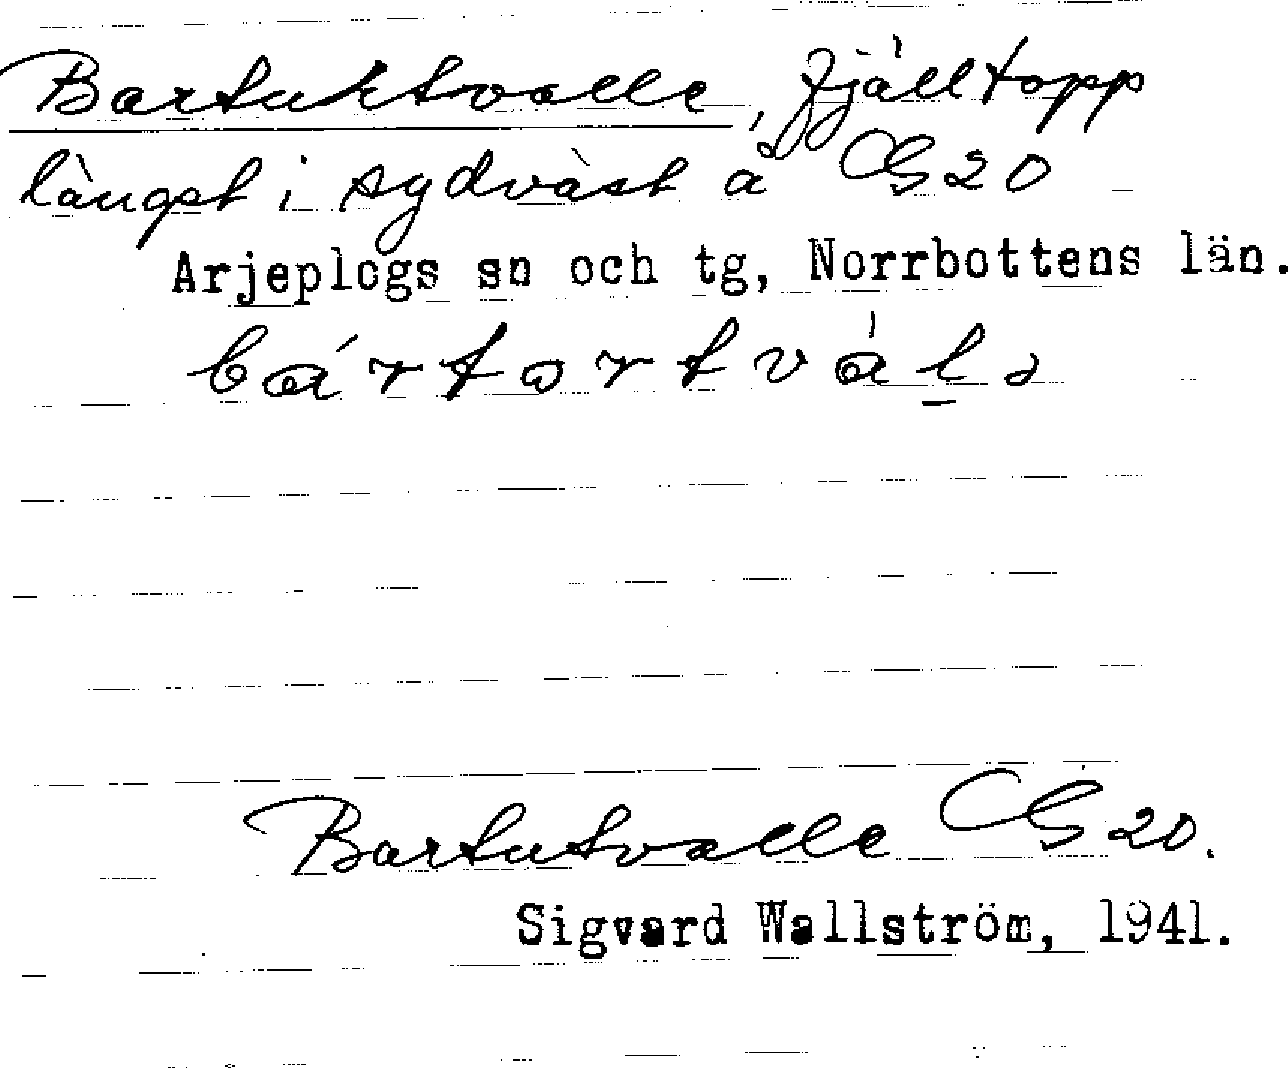 Bartuktvalle, fjälltopp
längst i sydväst å CG20
Arjeplogs sn och tg, Norrbottens län.
Bartutvalle CG20.
Sigvard Wallström, 1941.